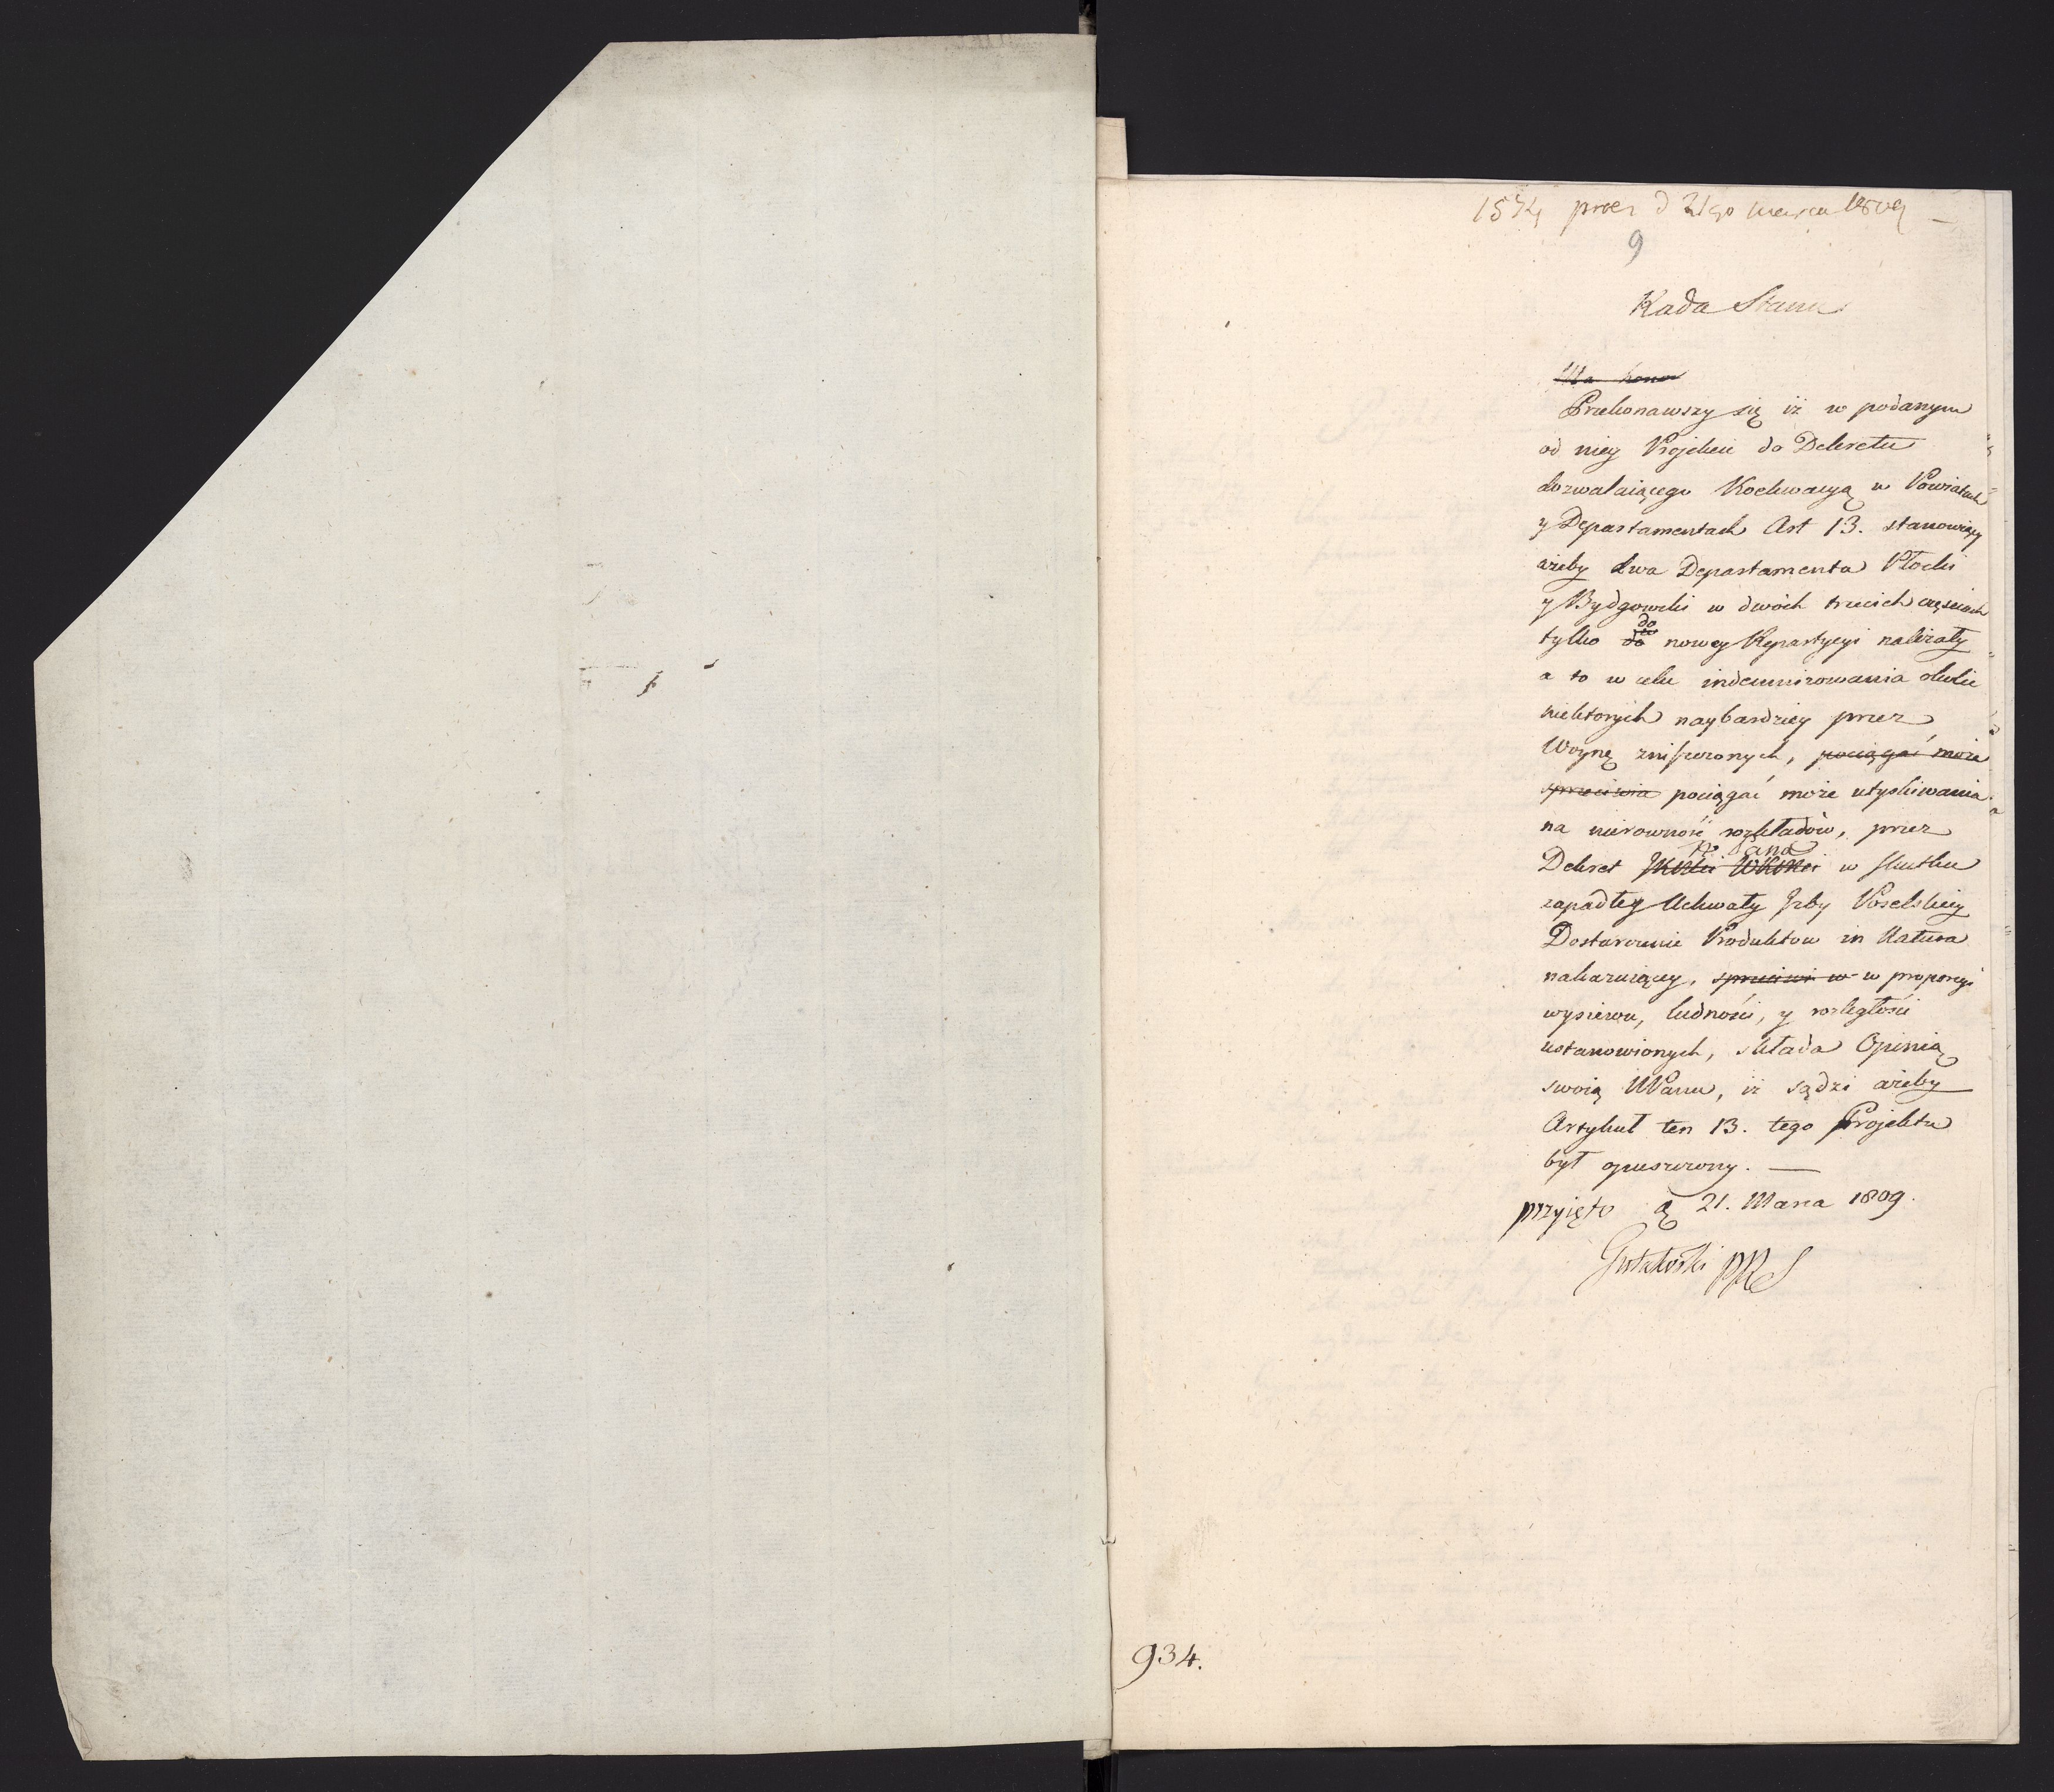 1574 prez d 21go marca 1809
9
Rada Stanu
Ma honor
Przekonawszy się iż w podanym
od niey Projekcie do Dekretu
dozwalaiącego Koekwacyą w Powiatach
y Departamentach Art 13. stanowiący
ażeby dwa Departamenta Płocki
y Bydgowski w dwóch trzecich częsciach
do
tylko do nowey Repartycyi należały
a to w celu indemnizowania okolic
niektorych naybardziey przez
Woynę zniszczonych, pociągać może
sprzeciwia pociągać może utyskiwania
na nierowność rozkładów, przez
Pana
Dekret w skutku
zapadłey Uchwały Izby Poselskiey
Dostarczenie Produktow in Natura
nakazuiący, sprzeciwi w w proporcyi
wysiewu, ludności, y rozległości
ustanowionych, składa Opinią
swoią WPanu, iż sądzi ażeby
Artykuł ten 13. tego Projektu
był opuszczony. —
przyięto 21. Marca 1809.
Gutakoski PRS
934.